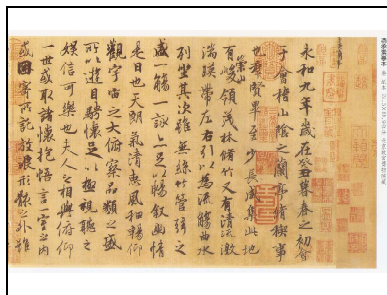 馮承素摹本
永和九年歲在癸丑暮春之初會
于會稽山陰之蘭亭脩稧事
也羣賢畢至少長咸集此地
崇山
有峻領茂林脩竹又有清流激
湍暎帶左右引以為流觴曲水
列坐其次雖無絲竹管弦之
盛一觴一詠亦足以暢敘幽情
是日也天朗氣清惠風和暢仰
觀宇宙之大俯察品類之盛
所以遊目騁懷足以極視聽之
娛信可樂也夫人之相與俯仰
一世或取諸懷抱悟言一室之內
或因寄所託放浪形骸之外雖